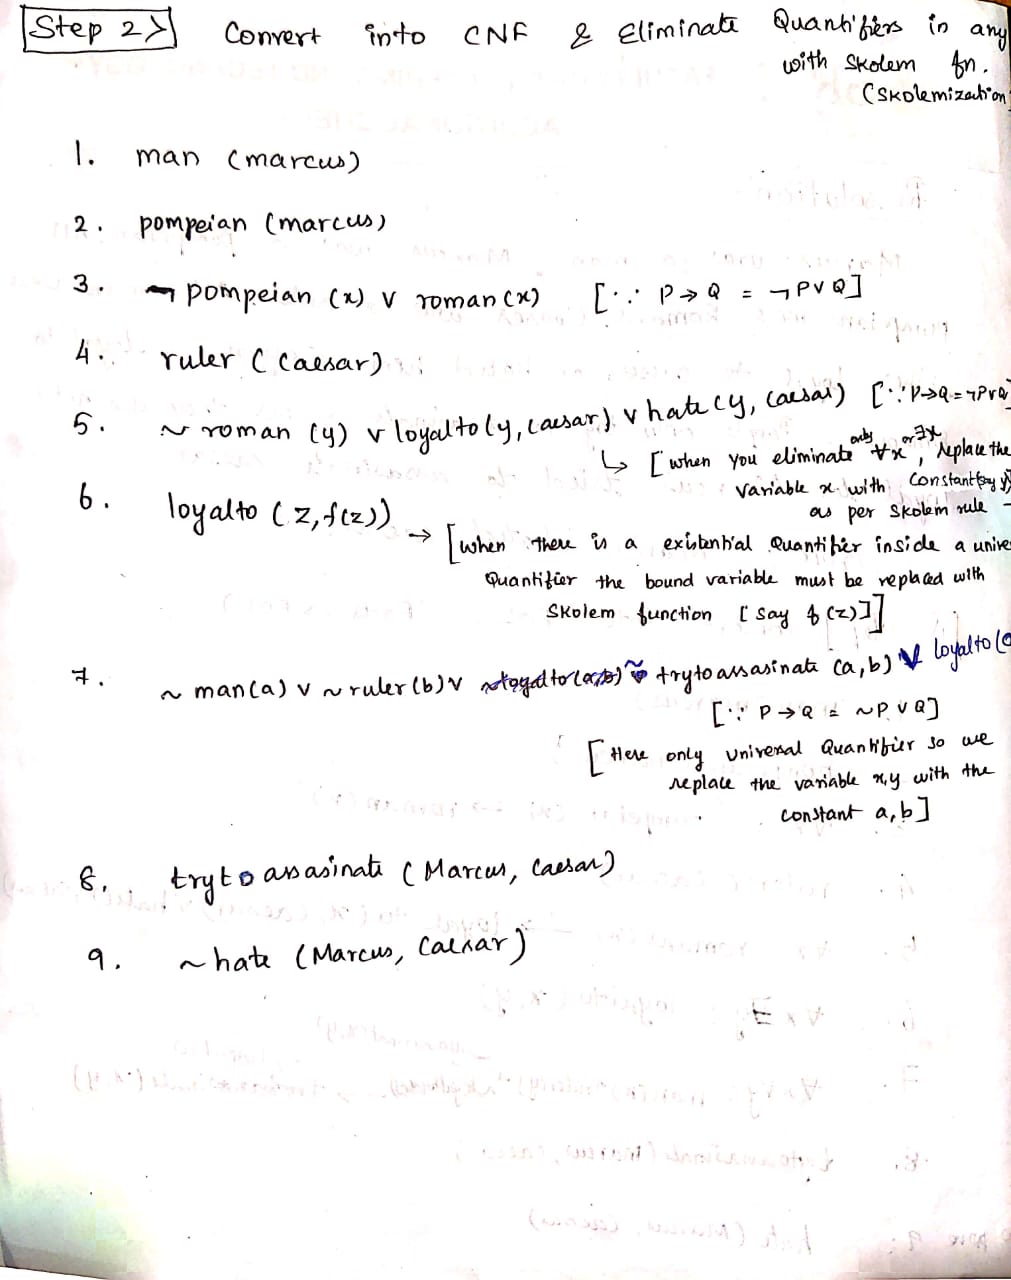 Step 2>
Convert into CNF & Eliminate Quantifiers in any
with Skolem fn.
(Skolemization
1. man (marcus)
2. pompeian (marcus)
3. ¬ pompeian (x) v roman (x) [∵ P → Q = ¬ P V Q]
4. ruler ( Caesar)
5. ~ roman (y) v loyalto (y, caesar) v hate (y, caesar) [∵ P→Q = ¬PvQ]
↳ [when you eliminate only ∀x or ∃x, replace the
variable x with constant (say y)
as per Skolem rule
6. loyalto ( z, f(z))
→ [when there is a existential Quantifier inside a unive
Quantifier the bound variable must be replaced with
Skolem function [say f (z)]]
7. ~ man (a) v ~ ruler (b) v ~ trytoassasinate (a, b) V loyalto (a
[∵ P → Q = ~P V Q]
[Here only universal Quantifier so we
replace the variable x,y with the
constant a, b]
8. tryto assasinate ( Marcus, Caesar)
9. ~ hate ( Marcus, Caesar)